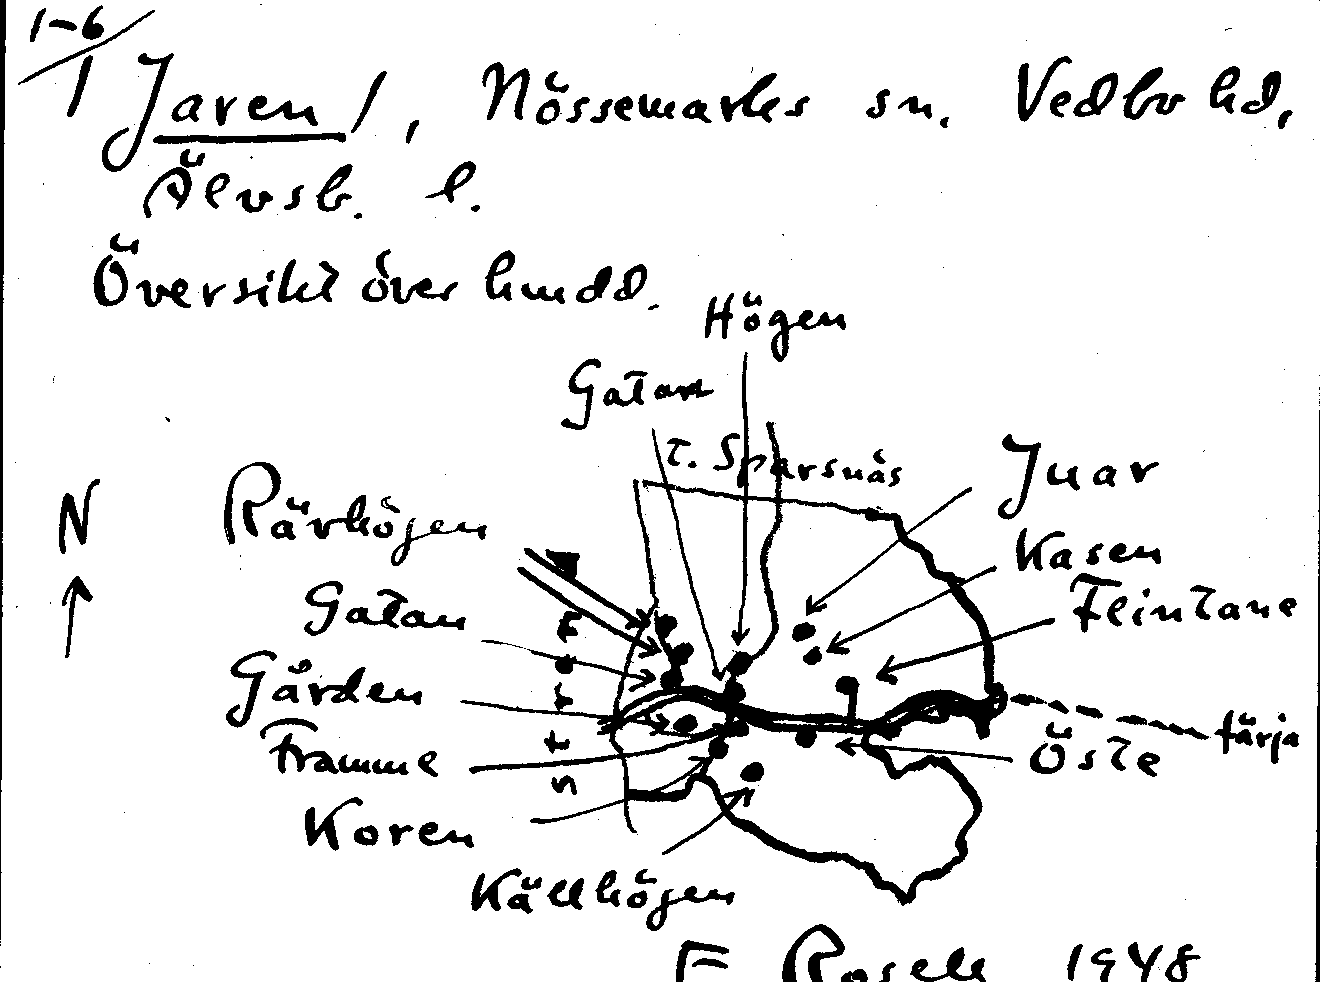 1-6
/ Jaren /, Nössemarks sn. Vedbo hd,
Älvsb. l.
Översikt över hmdd.
Högen
Gatan
T. Sparsnäs
Juar
N
Rävhögen
Kasen
Flintane
Gatan
Gården
färja
Framme
Öste
Koren
Källhögen
F Rosell 1948